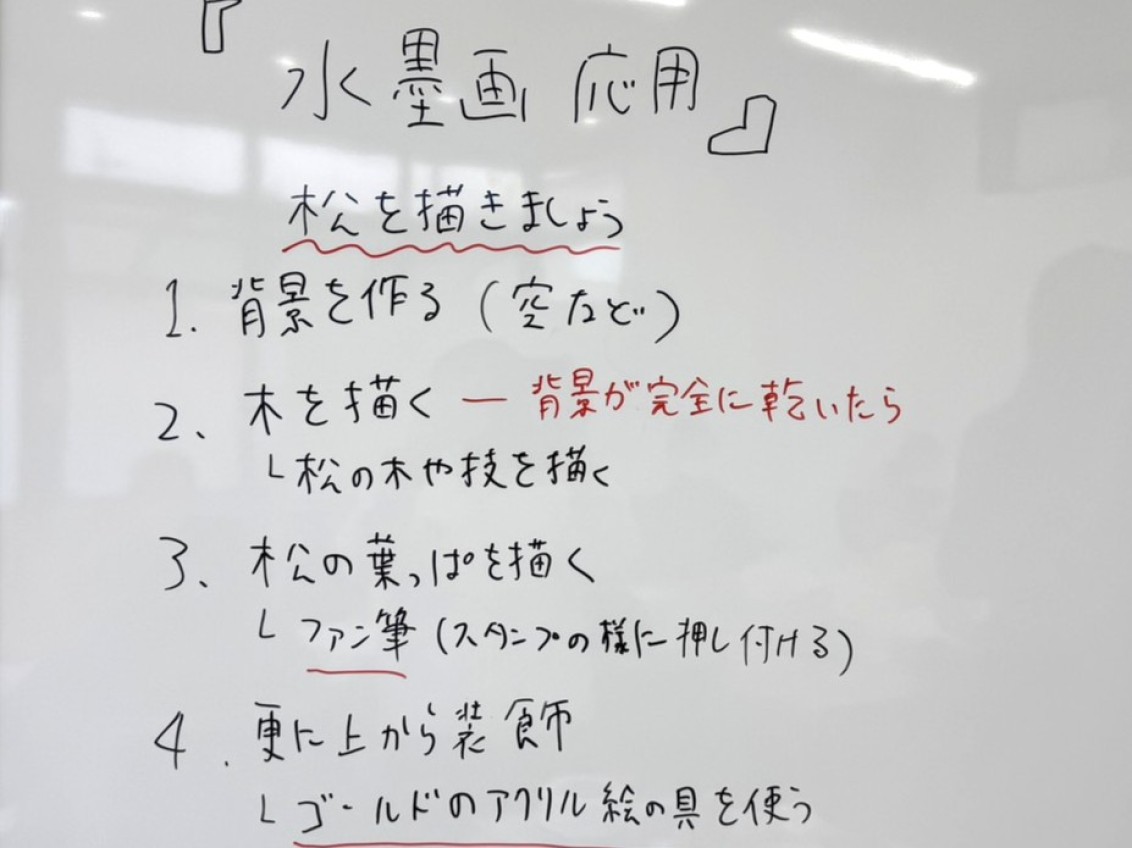 『水墨画 応用』
松を描きましょう
1. 背景を作る (空など)
2、木を描く ー 背景が完全に乾いたら
└松の木や技を描く
3、松の葉っぱを描く
└ファン筆 (スタンプの様に押し付ける)
4. 更に上から装飾
└ゴールドのアクリル絵の具を使う